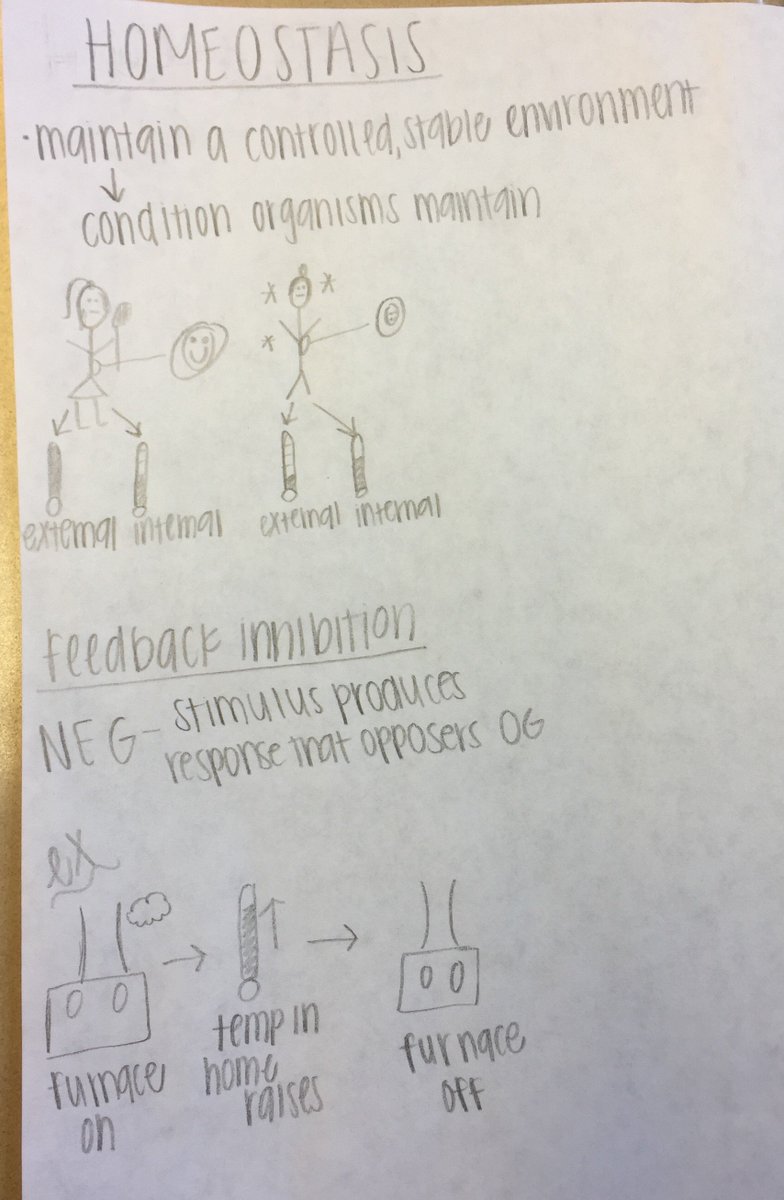 HOMEOSTASIS
·maintain a controlled, stable environment
condition organisms maintain
external internal external internal
feedback innibition
NEG- stimulus produces
response that opposers OG
ex
furnace
on
temp in
home
raises
furnace
off